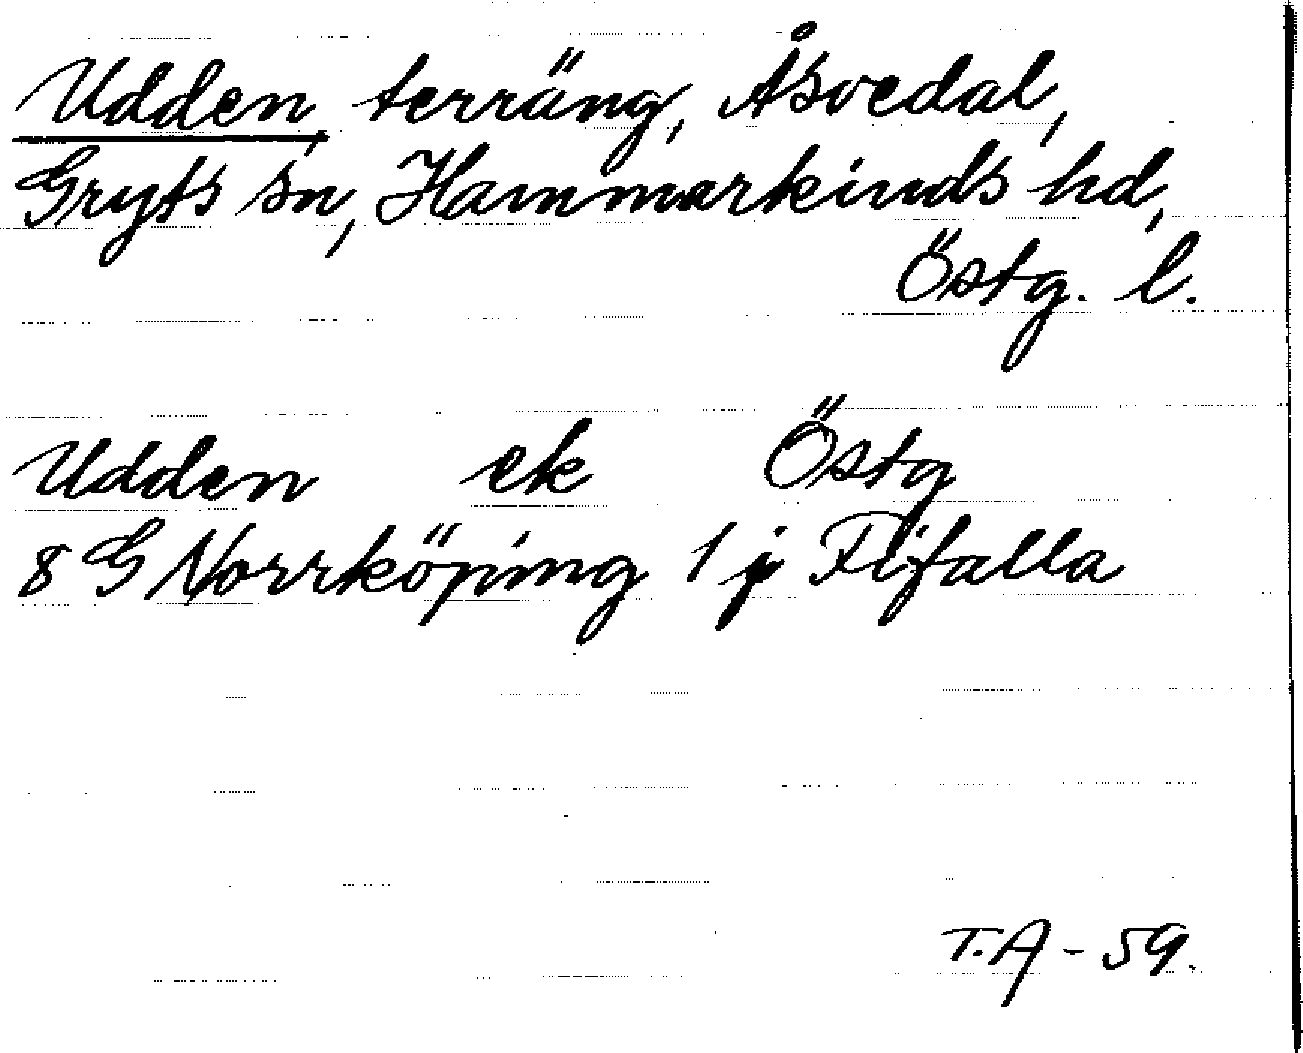 Udden, terräng, Åsvedal,
Gryts sn, Hammarkinds hd,
Östg. l.
Udden ek Östg
8 G Norrköping 1 j Fifalla
T.A - 59.